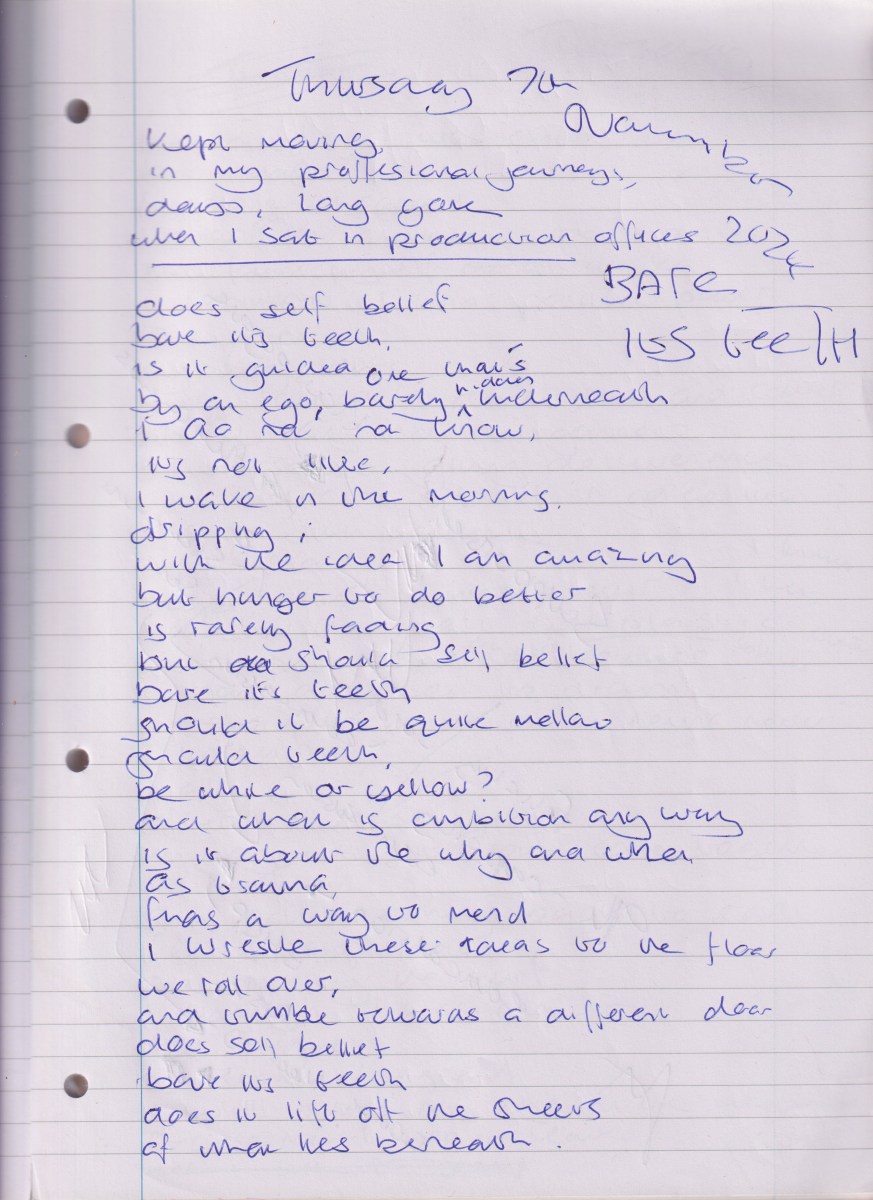 Thursday 7th
November
Kept moving,
in my proffesional journeys,
across, long gone
when I sat in production offices 2024
BARE
ITS teeTH
does self belief
bare its teeth,
is it guided one that's
by an ego, barely hidden underneath
I do not know,
its not like,
I wake in the morning,
dripping,
with the idea I am amazing
but hunger to do better
is rarely fading
but should self belief
bare its teeth
should it be quite mellow
should teeth,
be white or yellow?
and what is ambition any way
is it about the why and when
as trauma,
finds a way to mend
I wrestle these ideas to the floor
we roll over,
and tumble towards a different door
does self belief
bare its teeth
does it lift off the sheets
of what lies beneath.